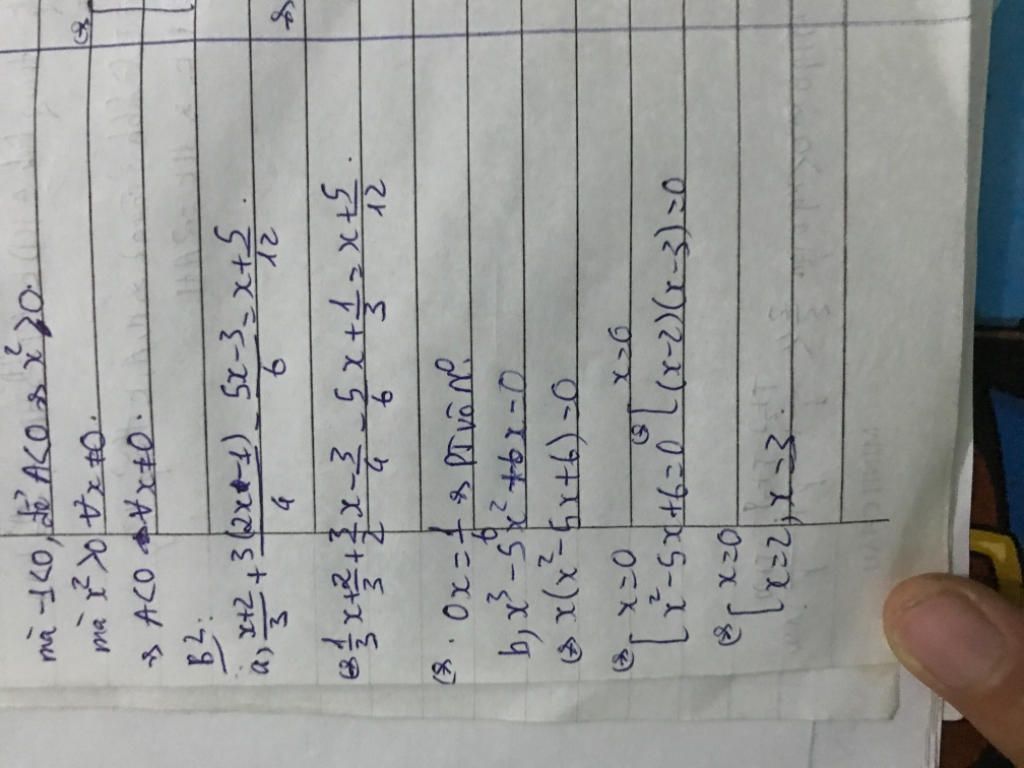 mà -1<0, để A<0 => x² > 0.
mà x² > 0 ∀x ≠ 0.
=> A<0 ∀x ≠ 0.
B2:
a, x+2/3 + 3(2x-1)/4 - 5x-3/6 = x + 5/12.
<=> 1/3 x + 2/3 + 3/2 x - 3/4 - 5/6 x + 1/3 = x + 5/12.
<=> . 0x = 1/6 => PT vô No.
b, x³ - 5x² + 6x = 0
<=> x(x² - 5x + 6) = 0
<=> [ x = 0 <=> [ x = 0
x² - 5x + 6 = 0 (x-2)(x-3) = 0
<=> [ x = 0
x = 2, x = 3.